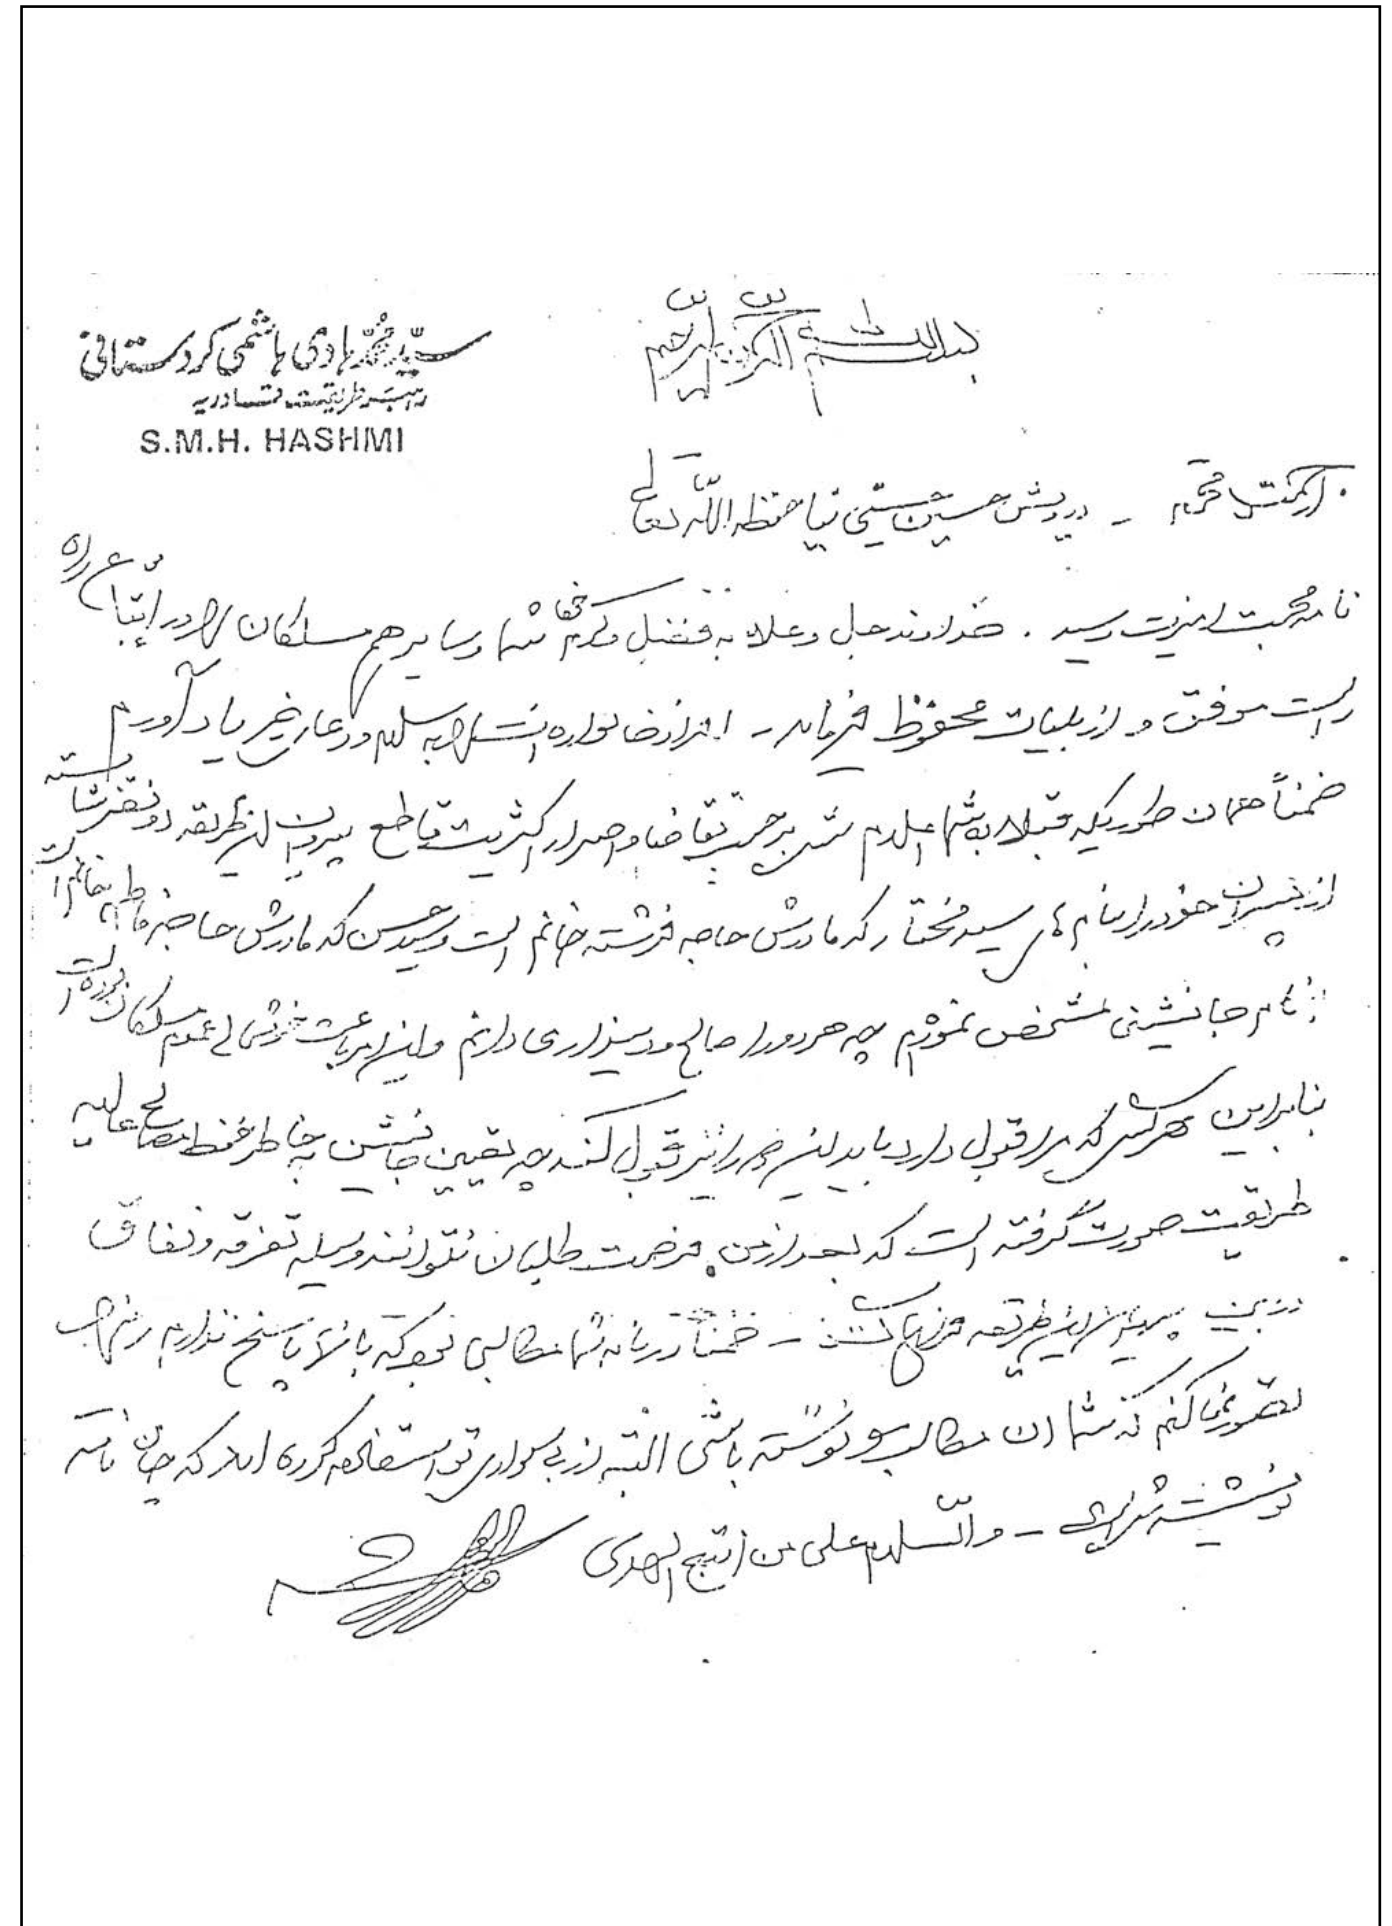 بسم الله الرحمن الرحیم
سید محمد هادی هاشمی کردستانی
رهبر طریقت قادریه
S.M.H. HASHMI
محترم - درویش حسین حسینی نیا حفظه الله تعالی
نامه محبت امیزت رسید . خداوند جل و علا به فضل و کرمش شما و سایر هم مسلکان را در اتباع راه
راست موفق و از بلیات محفوظ فرماید - افراد خانواده ات را به سلام و دعای خیر یاد آورم
ضمناً همان طوریکه قبلا به شما اعلام شد برحسب تقاضا و اصرار اکثریت قاطع پیروان این طریقه دو نفر شایسته
از پسران خود را بنام های سید مختار که مادرش حاجه فرشته خانم است و سید حسن که مادرش حاجیه فاطمه خانم است
جانشینی مشخص نمودم چه هر دو را صالح و در دینداری دانم و این امر باعث خوشحالی عموم مسلکان بوده است
بنابراین هر کس که مرا قبول دارد باید این امر را نیز قبول کند چه تعیین جانشین به خاطر حفظ مصالح عالیه
طریقت صورت گرفته است که بعد از من فرصت طلبان نتوانند وسیله تفرقه و نفاق
در بین پیروان این طریقه فراهم کنند - ضمناً در نامه شما مطالبی بود که بانها پاسخ ندارم
تصور نمی کنم که شما ان مطالب را نوشته باشی البته از بی سوادی تو استفاده کرده اند که چنان نامه
نوشته شده - والسلام علی من اتبع الهدی